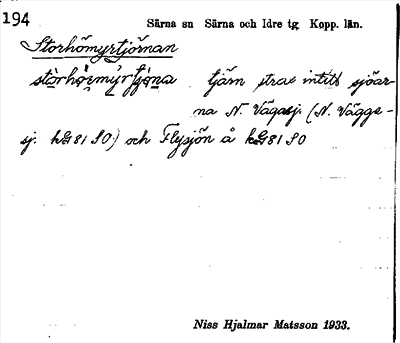 194
Särna sn Särna och Idre tg Kopp. län.
Storhömyrtjörnan
tjärn strax intill sjöar-
na N. Vägasj. (N. Vägge-
sj. kG81 SO) och Flysjön å kG81 SO
Niss Hjalmar Matsson 1933.